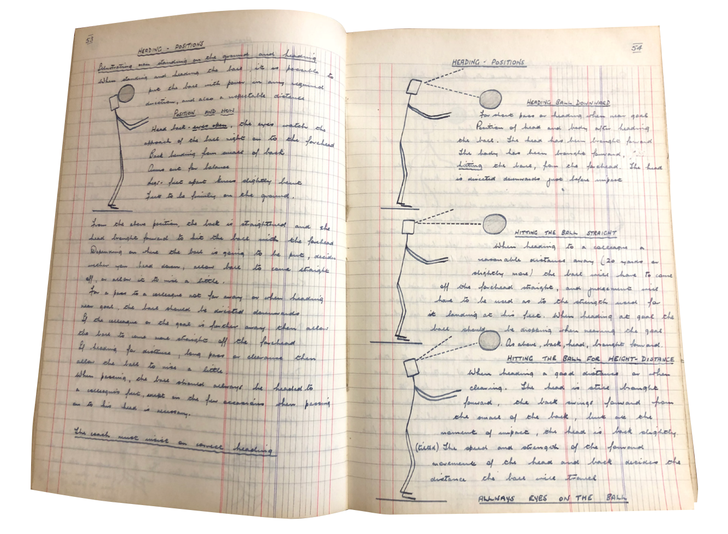 53
HEADING - POSITIONS
Illustrating man standing on the ground and heading
When standing and heading the ball it is possible to
put the ball with power in any required
direction, and also a respectable distance
POSITION AND MEN
Head back - eyes open, the eyes watch the
approach of the ball right on to the forehead
Back bending from small of back
Arms out for balance
feet apart knees slightly bent
to be firmly on the ground.
From the above position the back is straightened and the
head brought forward to hit the ball with the forehead
Depending on how the ball is going to be put, decides
whether you head down, allow ball to come straight
off, or allow it to rise a little.
For a pass to a colleague not far away or when heading
near goal, the ball should be directed downwards
If the colleague or the goal is further away then allow
the ball to come more straight off the forehead.
If heading for distance, long pass or clearance then
allow the ball to rise a little
When passing, the ball should allways be headed to
a colleague's feet, except on the few occasions when passing
on to his head is necessary.
The coach must insist on correct heading
54
HEADING - POSITIONS
HEADING BALL DOWNWARD
For short pass or heading when near goal
Position of head and body after heading
the ball. The head has been brought forward
The body has been brought forward,
hitting the ball, from the forehead. The head
is directed downwards just before impact
HITTING THE BALL STRAIGHT
When heading to a colleague a
reasonable distance away (20 yards or
slightly more) the ball will have to come
off the forehead straight, and judgement will
have to be used as to the strength used for
it landing at his feet. When heading at goal the
ball should be dropping when nearing the goal
As above, back, head, brought forward.
HITTING THE BALL FOR HEIGHT-DISTANCE
When heading a good distance or when
clearing. The head is still brought
forward, the back swings forward from
the small of the back, but at the
moment of impact, the head is back slightly
The speed and strength of the forward
movement of the head and back decides the
distance the ball will travel
ALLWAYS EYES ON THE BALL